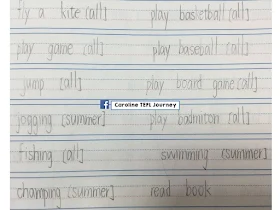 fly a kite [all]
play basketball [all]
play game [all]
play baseball [all]
jump [all]
play board game [all]
Caroline TEFL Journey
jogging [summer]
play badminton [all]
fishing [all]
swimming [summer]
champing [summer]
read book